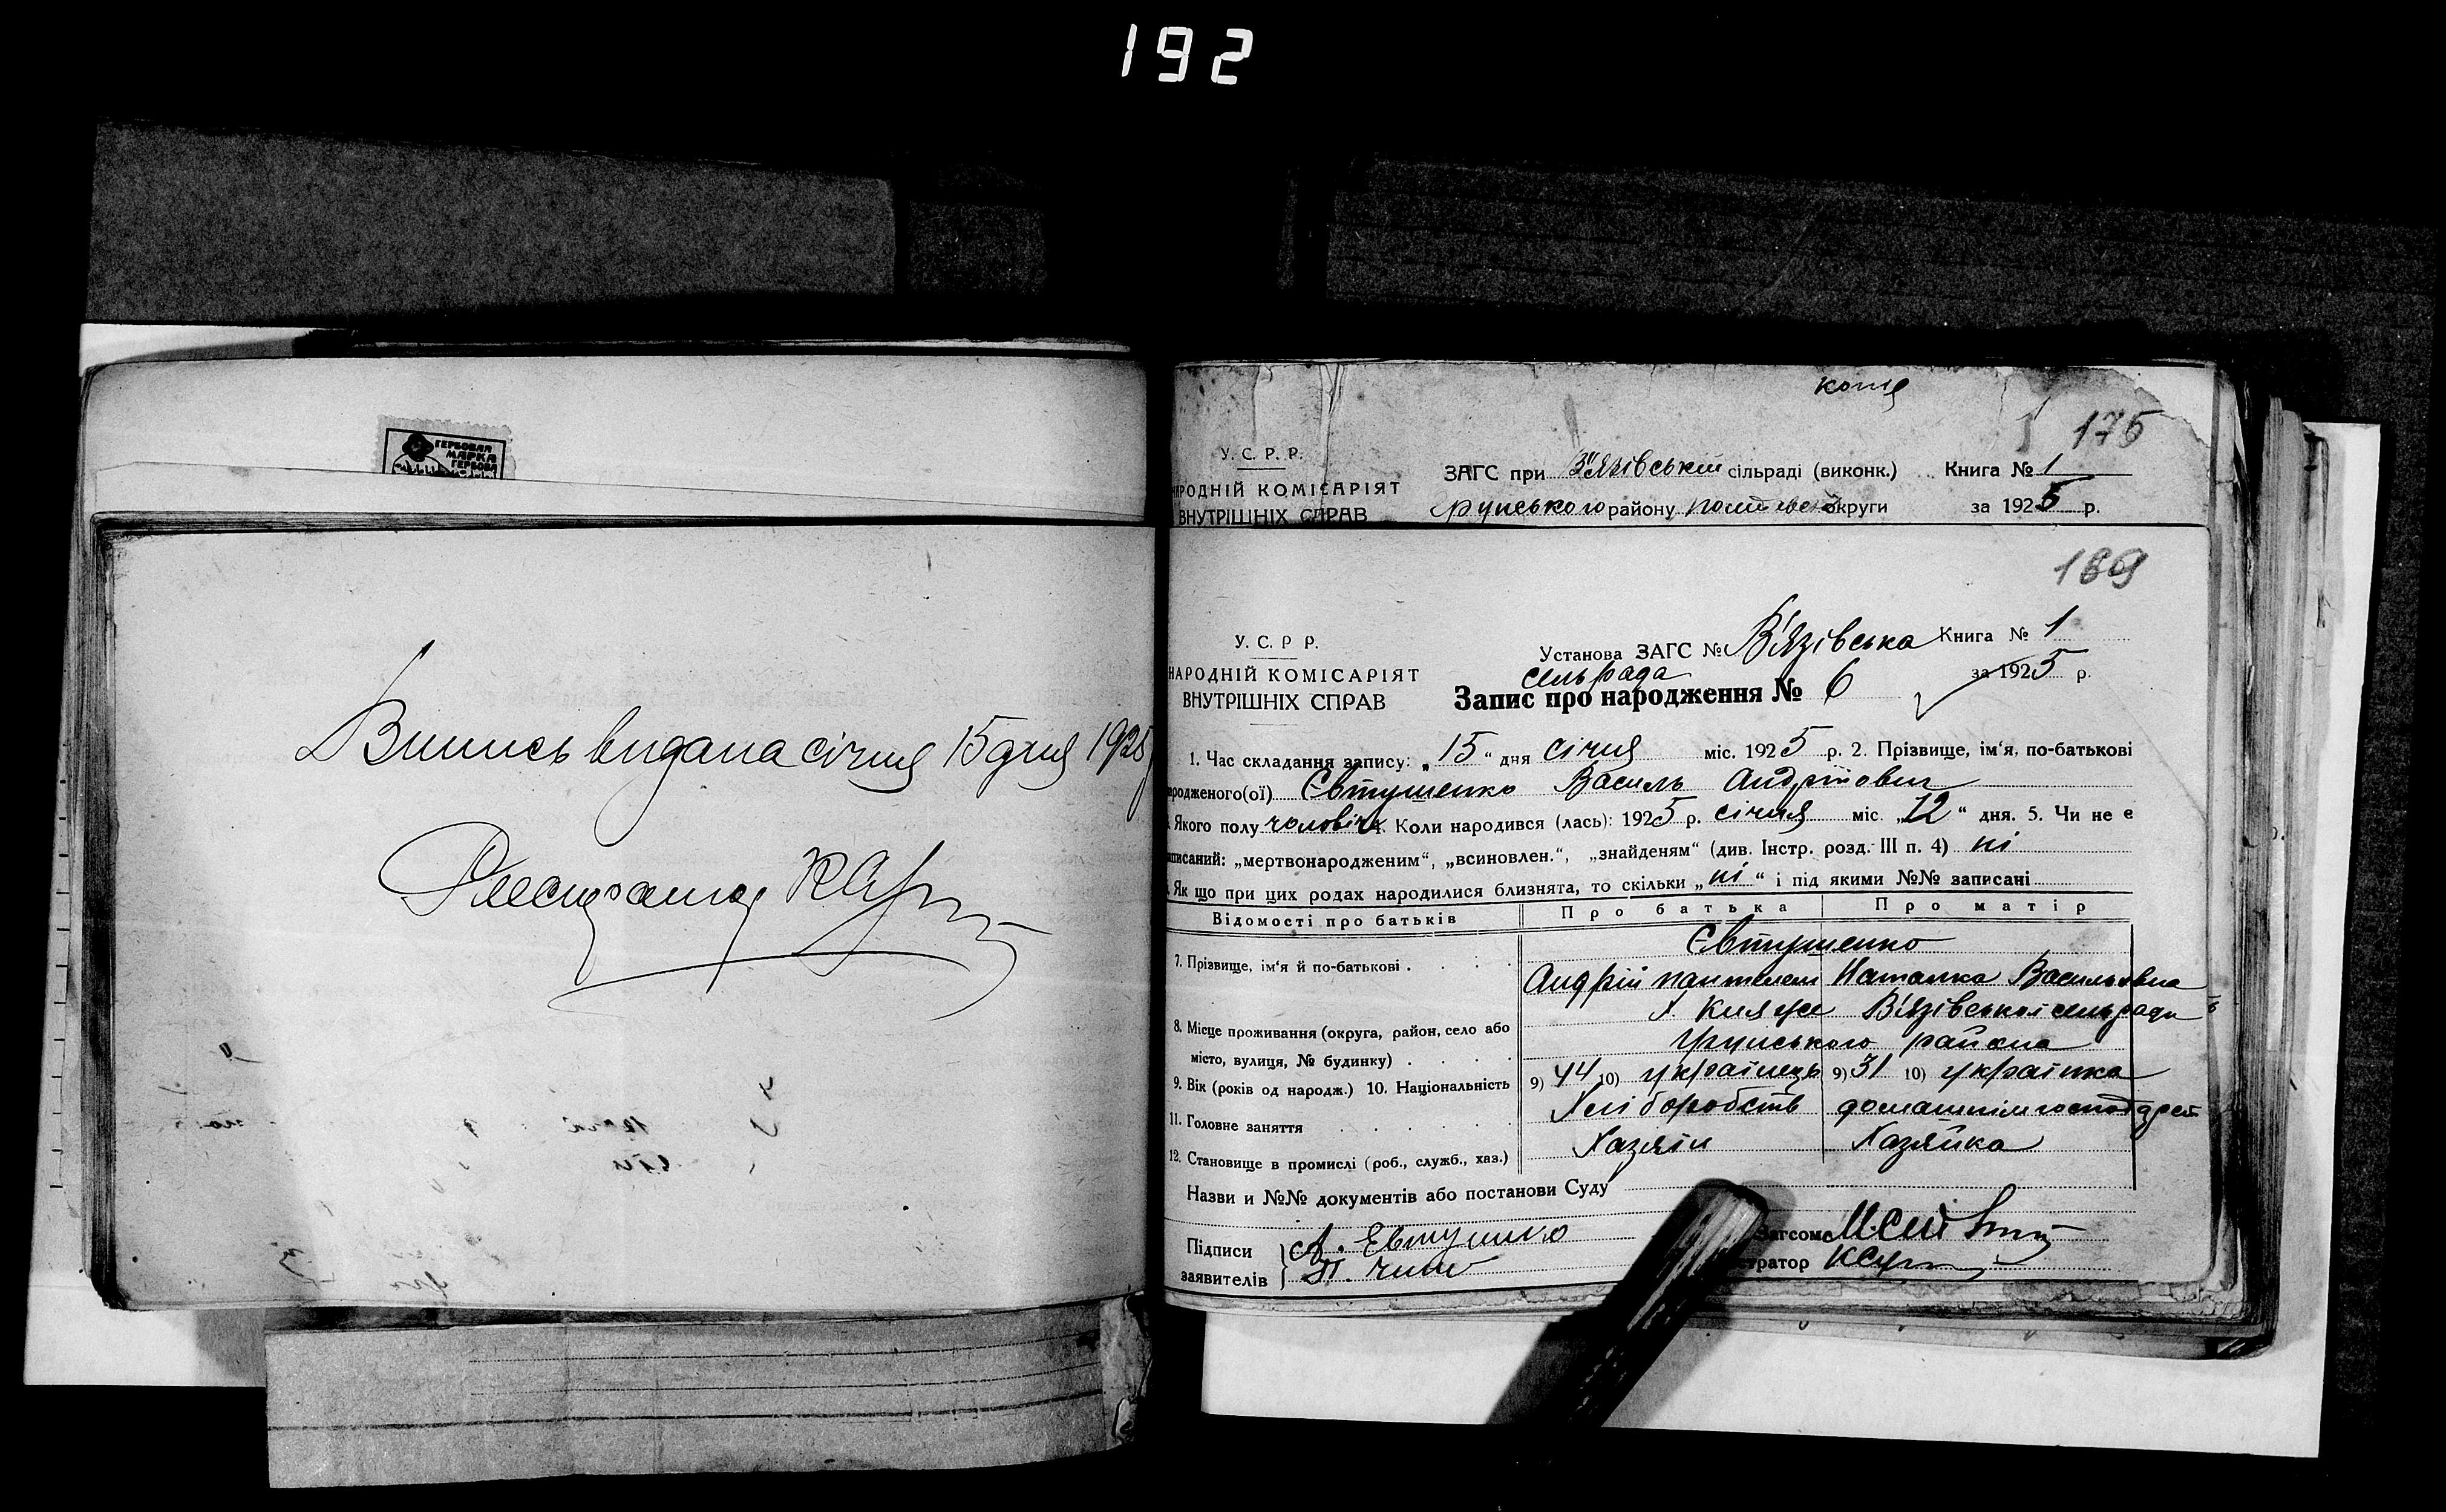 192
ГЕРБОВАЯ
МАРКА
ГЕРБОВА
Випись видана січня 15 дня 1925
копія
175
У. С. Р. Р.
НАРОДНІЙ КОМІСАРІЯТ
ВНУТРІШНІХ СПРАВ
ЗАГС при В'язівській сільраді (виконк.) Книга № 1
району округи за 1925 р.
169
У. С. Р. Р.
НАРОДНІЙ КОМІСАРІЯТ
ВНУТРІШНІХ СПРАВ
Установа ЗАГС № В'язівська Книга № 1
сельрада за 1925 р.
Запис про народження № 6
1. Час складання запису: „15“ дня січня міс. 1925 р. 2. Прізвище, ім'я, по-батькові
ародженого(ої) Євтушенко Василь Андрійович
Якого полу чоловіч. 4. Коли народився (лась): 1925 р. січня міс. „12“ дня. 5. Чи не є
записаний: „мертвонародженим“, „всиновлен.“, „знайденям“ (див. Інстр. розд. III п. 4) ні
Як що при цих родах народилися близнята, то скільки „ні“ і під якими №№ записані
Відомості про батьків Про батька Про матір
Євтушенко
7. Прізвище, ім'я й по-батькові Андрій Пантелем Наталка Васильовна
8. Місце проживання (округа, район, село або Х. Княже В'язівської сельради
місто, вулиця, № будинку) Грунського району
9. Вік (років од народж.) 10. Національність 9) 44 10) українець 9) 31 10) українка
11. Головне заняття Хліборобств домашнім господарст
12. Становище в промислі (роб., служб., хаз.) Хазяїн Хазяйка
Назви и №№ документів або постанови Суду
Підписи А. Евтушнко
заявителів
Загсом
стратор